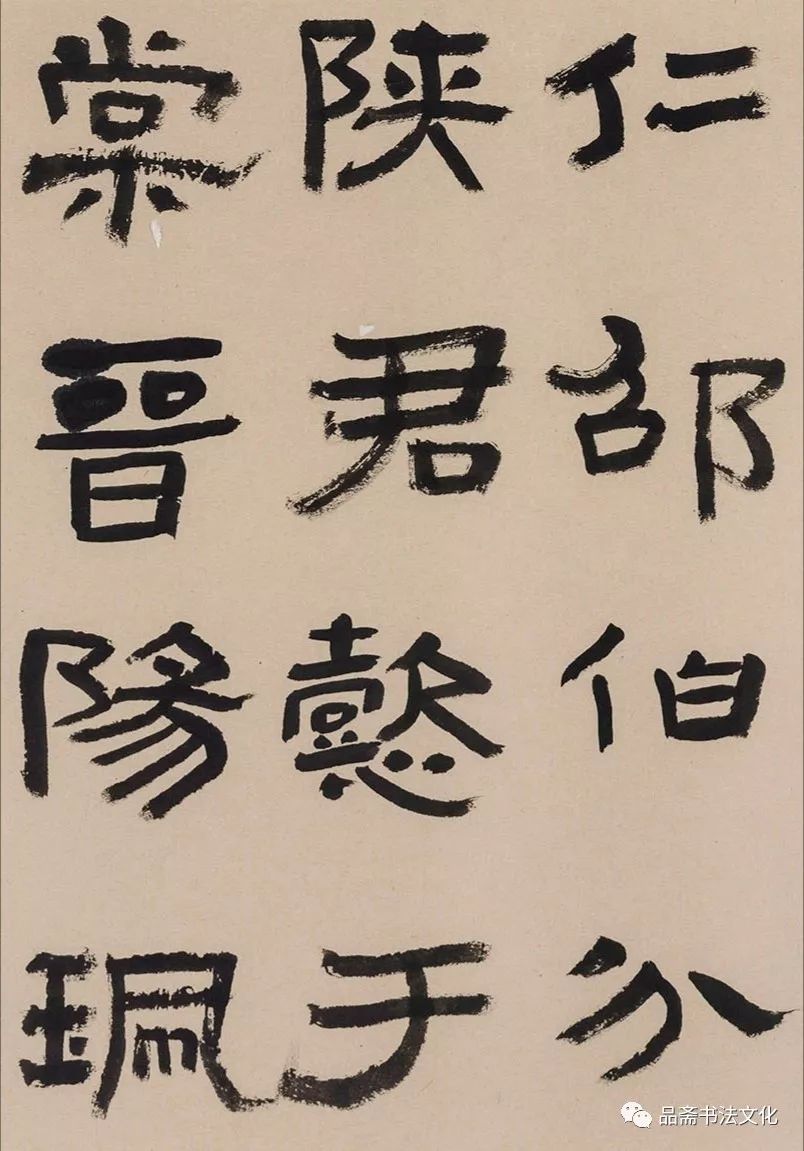 仁邵伯分
陕君懿于
棠晉陽珮
品斋书法文化